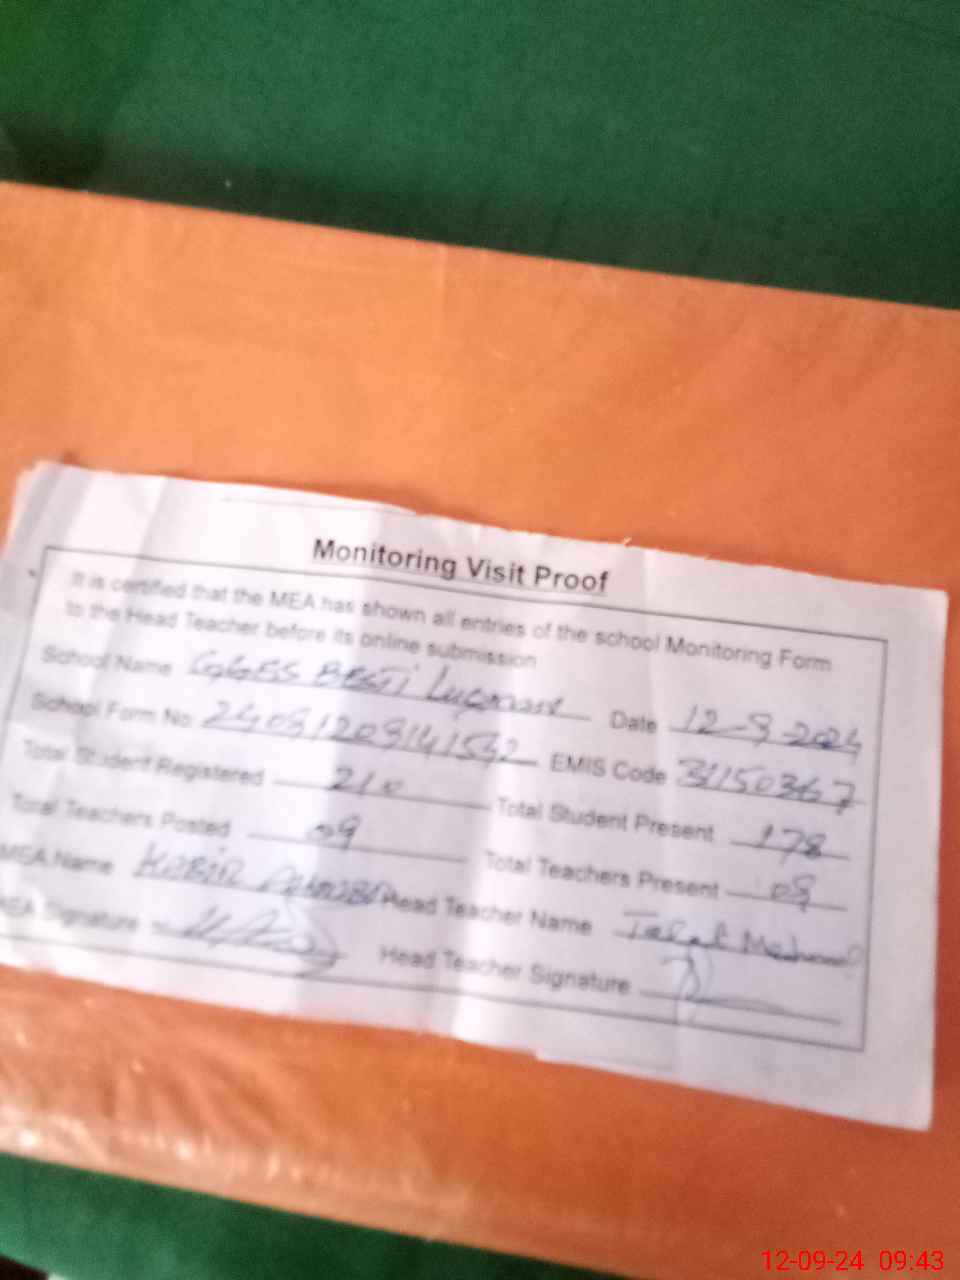 Monitoring Visit Proof
It is certified that the MEA has shown all entries of the school Monitoring Form
to the Head Teacher before its online submission
School Name GGES Basti Luqman Date 12-9-2024
School Form No. EMIS Code 31150367
Total Student Registered 210 Total Student Present 178
Total Teachers Posted 09 Total Teachers Present
MEA Name KABIR Head Teacher Name
MEA Signature Head Teacher Signature
12-09-24 09:43